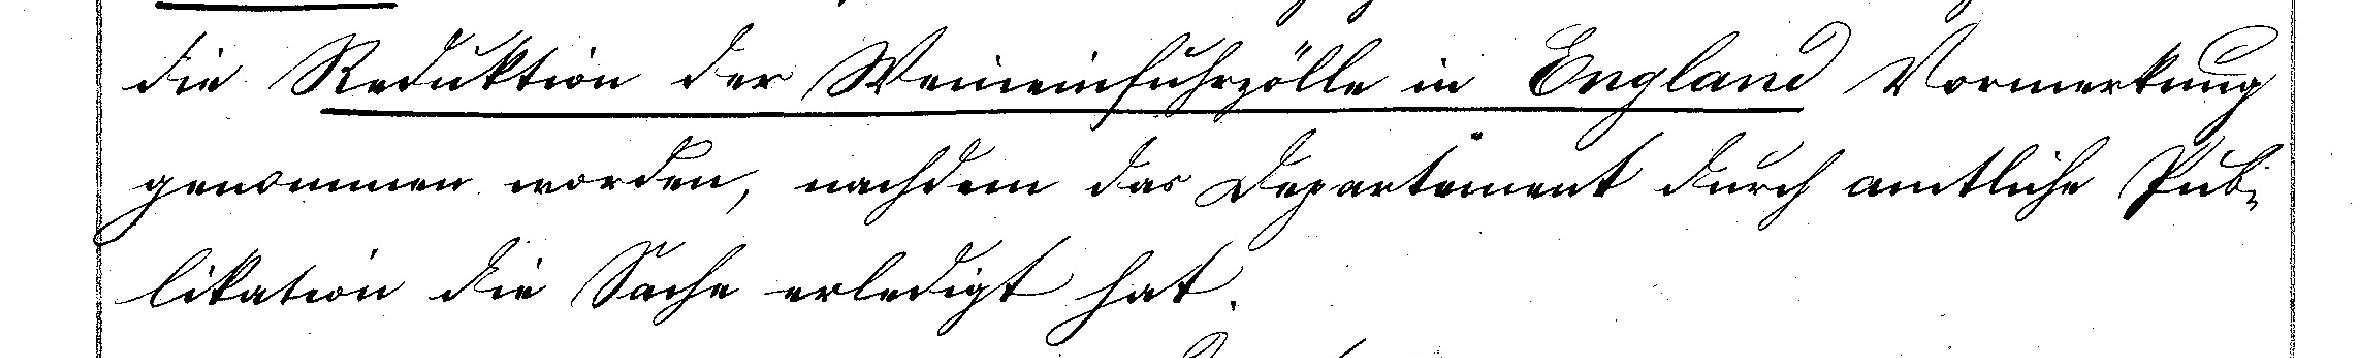 die Reduktion der Weineinfuhrzölle in England Vormerkung
genommen worden, nachdem das Departement durch amtliche Pub-
likation die Sache erledigt hat.